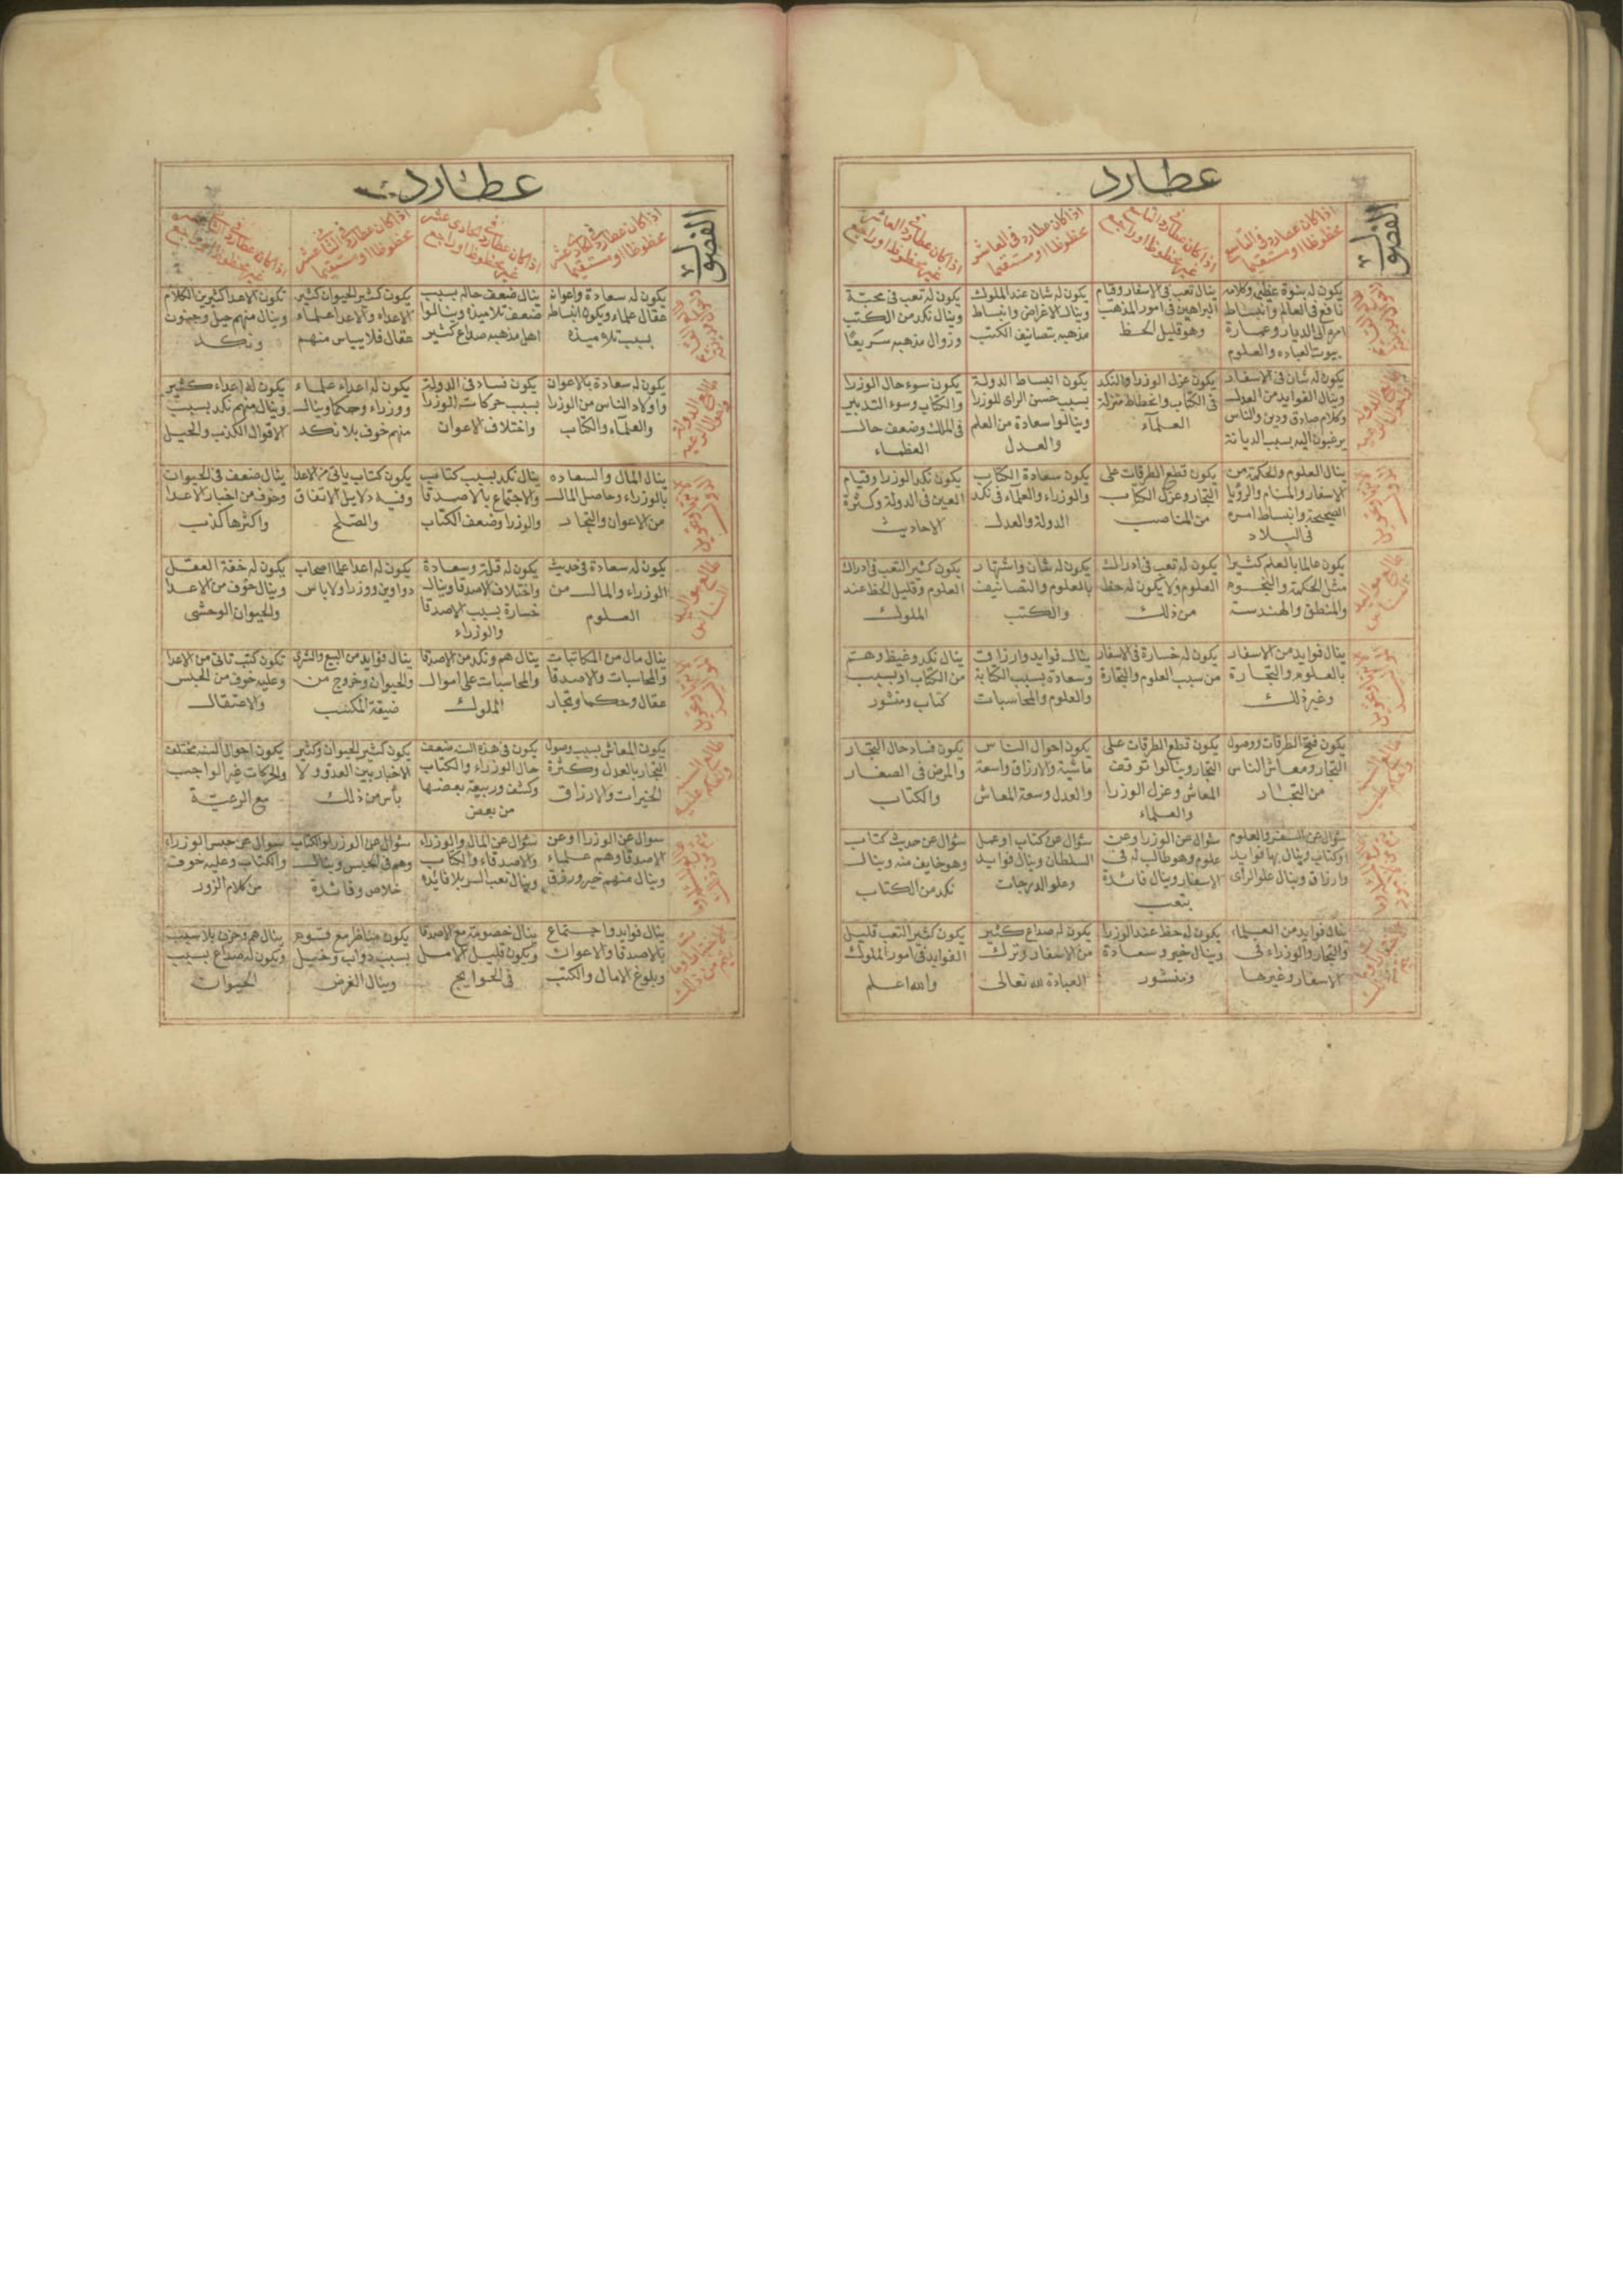 عطارد
الفصول
اذا كان عطارد فى التاسع
محظوظا او مستقيما
اذا كان عطارد فى التاسع
غير محظوظا او راجع
اذا كان عطارد فى العاشر
محظوظا او مستقيما
اذا كان عطارد فى العاشر
غير محظوظا او راجع
يكون له نبوة عظيمى وكلامه
نافع فى العالم وانبساط
امره الى الديار وعمارة
بيوت العباده والعلوم
ينال تعب فى الاسفار وقيام
البراهين فى امور المذهب
وهو قليل الحظ
يكون له شان عند الملوك
وينال الاغراض وانبساط
مذهبه بتصانيف الكتب
يكون له تعب فى محبة
وينال نكد من الكتب
وزوال مذهبه سريعا
طالع الدولة
يكون له شان فى الاسفار
وينال الفوايد من العدل
وكلام صادق ودين والناس
يرغبون اليه بسبب الديانة
يكون عزل الوزرا والنكد
فى الكتاب وانحطاط منزلة
العلمآء
يكون انبساط الدولة
بسبب حسن الراى للوزرا
وينالوا سعادة من العلم
والعدل
يكون سوء حال الوزرا
والكتاب وسوء التدبير
فى الملك وضعف حال
العظماء
ينال العلوم والحكمة من
الاسفار والمنام والرؤيا
الصحيحة وانبساط امره
فى البلاد
يكون قطع الطرقات على
التجار وعزل الكتاب
من المناصب
يكون سعادة الكتاب
والوزراء والعلمآء فى نكد
الدولة والعدل
يكون نكد الوزرا وقيام
العين فى الدولة وكثرة
الاحاديث
طالع مواليد
الناس
يكون عالما بالعلم كثيرا
مثل الحكمة والنجوم
والمنطق والهندسة
يكون له تعب فى ادراك
العلوم ولا يكون له حظ
من ذلك
يكون له شان واشتهار
بالعلوم والتصانيف
والكتب
يكون كثير التعب فى ادراك
العلوم وقليل الحظ عند
الملوك
ينال فوايد من الاسفار
بالعلوم والتجارة
وغير ذلك
يكون له خسارة فى الاسفار
من سبب العلوم والتجارة
ينال فوايد وارزاق
وسعادة بسبب الكتابة
والعلوم والمحاسبات
ينال نكد وغيظ وهم
من الكتاب او بسبب
كتاب ومنشور
طالع السنة
يكون فتح الطرقات ووصول
التجار ومعاش الناس
من التجار
يكون قطع الطرقات على
التجار وينالوا توقف
المعاش وعزل الوزرا
والعلماء
يكون احوال الناس
ماشية والارزاق واسعة
والعدل وسعة المعاش
يكون فساد حال التجار
والمرض فى الصغار
والكتاب
سؤال عن السفر والعلوم
او كتاب وينال بها فوايد
وارزاق وينال علو الراى
سؤال عن الوزرا وعن
علوم وهو طالب له فى
الاسفار وينال فائدة
بتعب
سؤال عن كتاب او عمل
السلطان وينال فوايد
وعلو الدرجات
سؤال عن حديث كتاب
وهو خايف منه وينال
نكد من الكتاب
ينال فوايد من العلماء
والتجار والوزراء فى
الاسفار وغيرها
يكون له حظ عند الوزرا
وينال خير وسعادة
ومنشور
يكون له صداع كثير
من الاسفار وترك
العبادة لله تعالى
يكون كثير التعب قليل
الفوايد فى امور الملوك
والله اعلم
عطارد
الفصول
اذا كان عطارد فى الحادى عشر
محظوظا او مستقيما
اذا كان عطارد فى الحادى عشر
غير محظوظا او راجع
اذا كان عطارد فى الثانى عشر
محظوظا او مستقيما
اذا كان عطارد فى الثانى عشر
غير محظوظا او راجع
يكون له سعادة واعوانه
عقال علماء ويكون انبساطه
بسبب تلاميذه
ينال ضعف حاله بسبب
ضعف تلاميذه وينالوا
اهل مذهبه صداع كثير
يكون كثير الحيوان كثير
الاعداء والاعدا علماء
عقال فلا يباس منهم
تكون الاعدا كثيرين الكلام
وينال منهم حيل وجنون
ونكد
طالع الدولة
يكون له سعادة بالاعوان
واولاد الناس من الوزرا
والعلمآء والكتاب
يكون فساد فى الدولة
بسبب حركات الوزرا
واختلاف الاعوان
يكون له اعداء علماء
ووزراء وحكما وينال
منهم خوف بلا نكد
يكون له اعداء كثير
وينال منهم نكد بسبب
الاقوال الكذب والحيل
ينال المال والسعاده
بالوزراء وحاصل المال
من الاعوان والتجار
ينال نكد بسبب كتاب
والاجتماع بالاصدقا
والوزرا وضعف الكتاب
يكون كتاب ياتى من الاعدا
وفيه دلايل الاتفاق
والصلح
ينال ضعف فى الحيوان
وخوف من اخبار الاعدا
واكثرها كذب
طالع مواليد
الناس
يكون له سعادة فى حديث
الوزراء والمال من
العلوم
يكون له قلة وسعادة
واختلاف الاصدقا وينال
خسارة بسبب الاصدقا
والوزراء
يكون له اعدا علما اصحاب
دواوين ووزرا ولا باس
يكون له خفة العقل
وينال خوف من الاعدا
والحيوان الوحشى
ينال مال من المكاتبات
والمحاسبات والاصدقا
عقال وحكما وتجار
ينال هم ونكد من الاصدقا
والمحاسبات على اموال
الملوك
ينال فوايد من البيع والشرى
والحيوان وخروج من
ضيقة المكتب
تكون كتب تاتى من الاعدا
وعليه خوف من الحبس
والاعتقال
طالع السنة
يكون المعاش بسبب وصول
التجار بالعدل وكثرة
الخيرات والارزاق
يكون فى هذه السنه ضعف
حال الوزراء والكتاب
وكشف وربيعة بعضها
من بعض
يكون كثير الحيوان وكثير
الاخبار بين العدو ولا
بأس من ذلك
يكون احوال السنه مختلفه
والحركات غير الواجب
مع الرعيّة
سوال عن الوزرا او عن
الاصدقا وهم علماء
وينال منهم خير ورزق
سؤال عن المال والوزراء
والاصدقاء والكتاب
وينال تعب السر بلا فائده
سؤال عن الوزرا والكتاب
وهم فى الحبس وينال
خلاص وفائدة
سوال عن حبس الوزراء
والكتاب وعليه خوف
من كلام الزور
ينال فوايد واجتماع
بالاصدقا والاعوان
وبلوغ الامال والكتب
ينال خصومة مع الاصدقا
ويكون قليل الامل
فى الحوايج
يكون مناظر مع قوم
بسبب دواب وخيل
وينال الغرض
ينال هم وحزن بلا سبب
ويكون له صداع بسبب
الحيوان